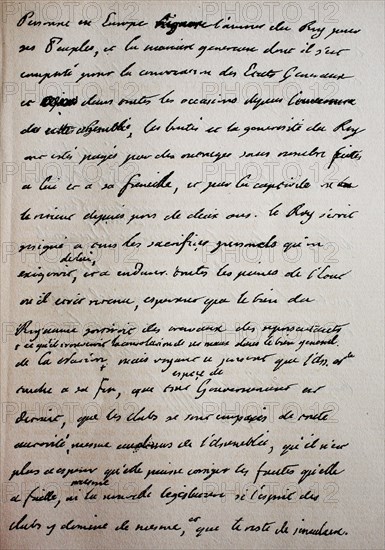 Personne en Europe ignore l'amour du Roy pour
ses Peuples, et la maniere genereuse dont il s'est
comporté pour la convocation des Etats Generaux
et dans toutes les occasions depuis l'ouverture
de cette assemblée, les bontés et la generosité du Roy
ont été payés par des outrages sans nombre faittes
a lui et a sa famille, et par la captivité
depuis pres de deux ans. le Roy s'etoit
resigné a tous les sacrifices personnels qu'on
de lui,
exigeoit, et a endurer toutes les peines de l'etat
ou il etoit reduit, esperant que le bien du
Royaume sortiroit des travaux des representants
et qu'il trouveroit la consolation de ses maux dans le bien general.
de la Nation, mais voyant a present que l'Ass.
espece de
touche a sa fin, que tout Gouvernement est
detruit, que les clubs se sont emparés de toute
autorité, meme au dessus de l'Assemblée, qu'il n'est
plus a esperer qu'elle puisse corriger les fautes qu'elle
meme
a faitte, ni la nouvelle legislature si l'esprit des
clubs y domine de meme, et que le reste de